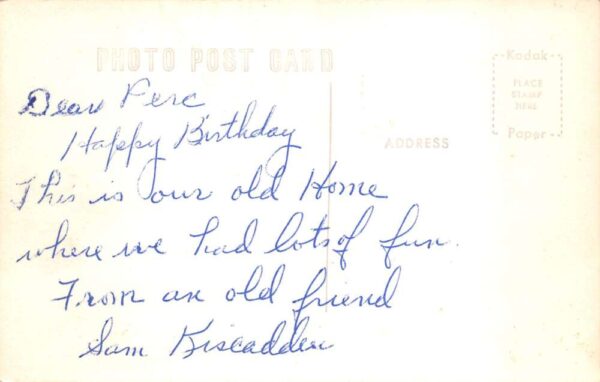 PHOTO POST CARD
Kodak
PLACE
STAMP
HERE
Paper
ADDRESS
Dear Ferc
Happy Birthday
This is our old Home
where we had lots of fun.
From an old friend
Sam Kiscadden